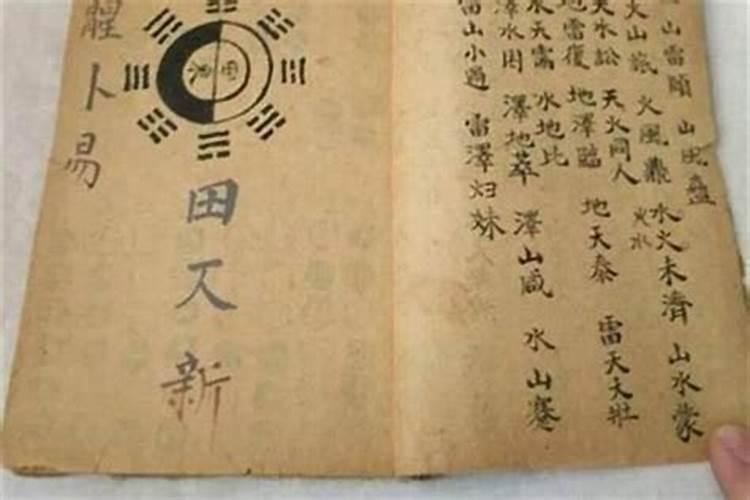 山雷頤 山風蠱
火山旅 火風鼎 火水 水火未濟 山水蒙
天水訟 天火同人
地雷復 地澤臨 地天泰 雷天大壯
水天需 水地比
澤水困 澤地萃 澤山咸 水山蹇
雷山小過 雷澤归妹
田 新
卜易